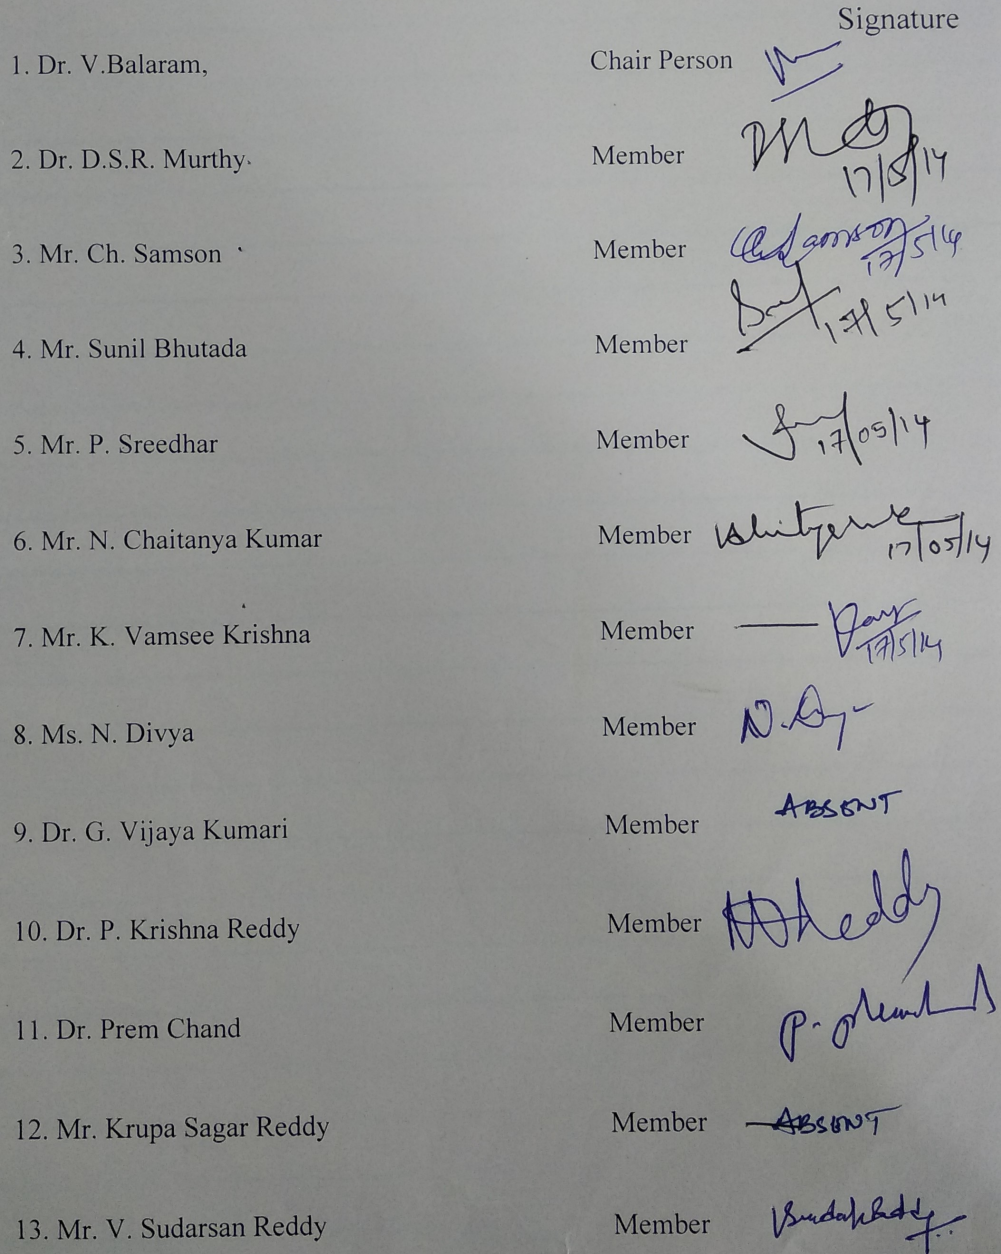 Signature
1. Dr. V.Balaram, Chair Person
2. Dr. D.S.R. Murthy. Member
17/5/14
3. Mr. Ch. Samson Member Ch Samson
17/5/14
4. Mr. Sunil Bhutada Member
17/5/14
5. Mr. P. Sreedhar Member
17/05/14
6. Mr. N. Chaitanya Kumar Member
17/05/14
7. Mr. K. Vamsee Krishna Member
17/5/14
8. Ms. N. Divya Member
9. Dr. G. Vijaya Kumari Member ABSENT
10. Dr. P. Krishna Reddy Member Reddy
11. Dr. Prem Chand Member
12. Mr. Krupa Sagar Reddy Member ABSENT
13. Mr. V. Sudarsan Reddy Member